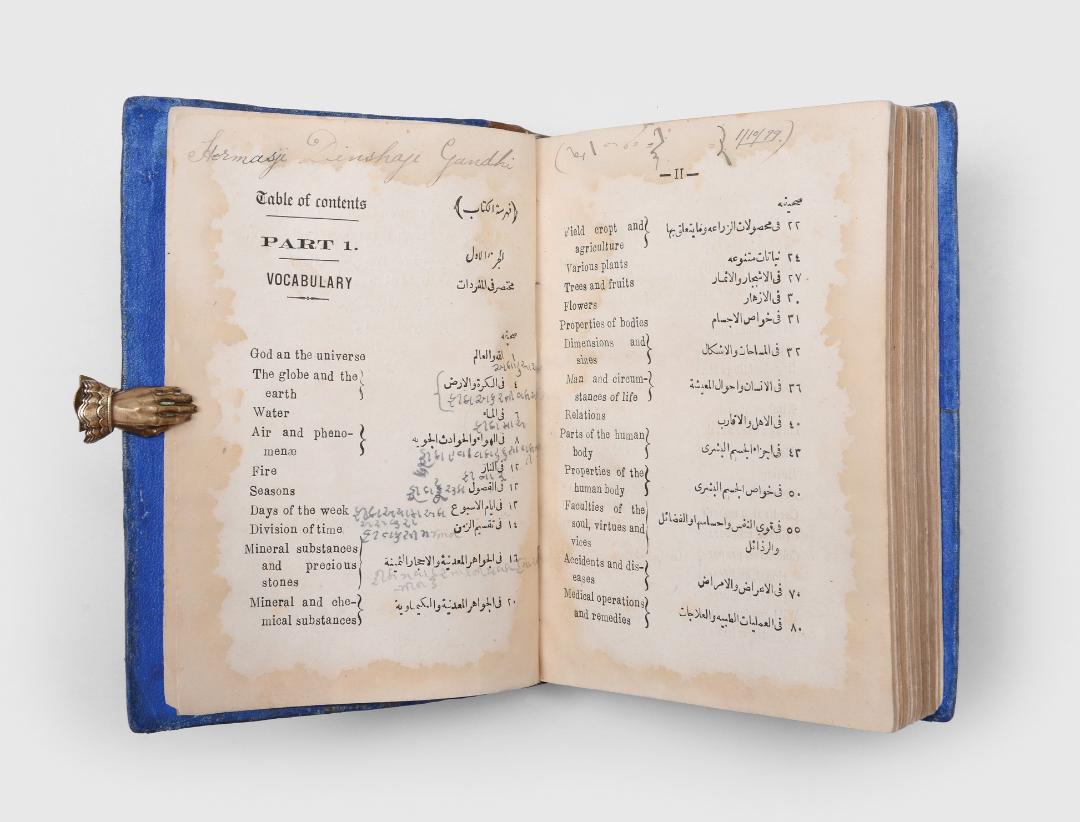 Hormasji Dinshaji Gandhi
Table of contents (فهرسة الكتاب)
PART 1. الجزء الاول
VOCABULARY مختصر فى المفردات
صحيفه
God an the universe والعالم
The globe and the ٤ فى الكرة والارض
earth
Water ٦ فى الماء
Air and pheno- ٨ فى الهواء والحوادث الجويه
menæ
Fire ١٢ فى النار
Seasons ١٢ فى الفصول
Days of the week ١٣ فى ايام الاسبوع
Division of time ١٤ فى تقسيم الزمن
Mineral substances ١٦ فى الجواهر المعدنية والاحجار الثمينة
and precious
stones
Mineral and che- ٢٠ فى الجواهر المعدنية والكيماوية
mical substances
1/10/79.)
—II—
صحيفه
Field cropt and ٢٢ فى محصولات الزراعه وما يتعلق بها
agriculture
Various plants ٢٤ نباتات متنوعه
Trees and fruits ٢٧ فى الاشجار والاثمار
Flowers ٣٠ فى الازهار
Properties of bodies ٣١ فى خواص الاجسام
Dimensions and ٣٢ فى المساحات والاشكال
sizes
Man and circum- ٣٦ فى الانسان واحوال المعيشة
stances of life
Relations ٤٠ فى الاهل والاقارب
Parts of the human ٤٣ فى اجزاء الجسم البشرى
body
Properties of the ٥٠ فى خواص الجسم البشرى
human body
Faculties of the ٥٥ فى قوي النفس واحساسها والفضائل
soul, virtues and والرذائل
vices
Accidents and dis- ٧٠ فى الاعراض والامراض
eases
Medical operations ٨٠ فى العمليات الطبيه والعلاجات
and remedies